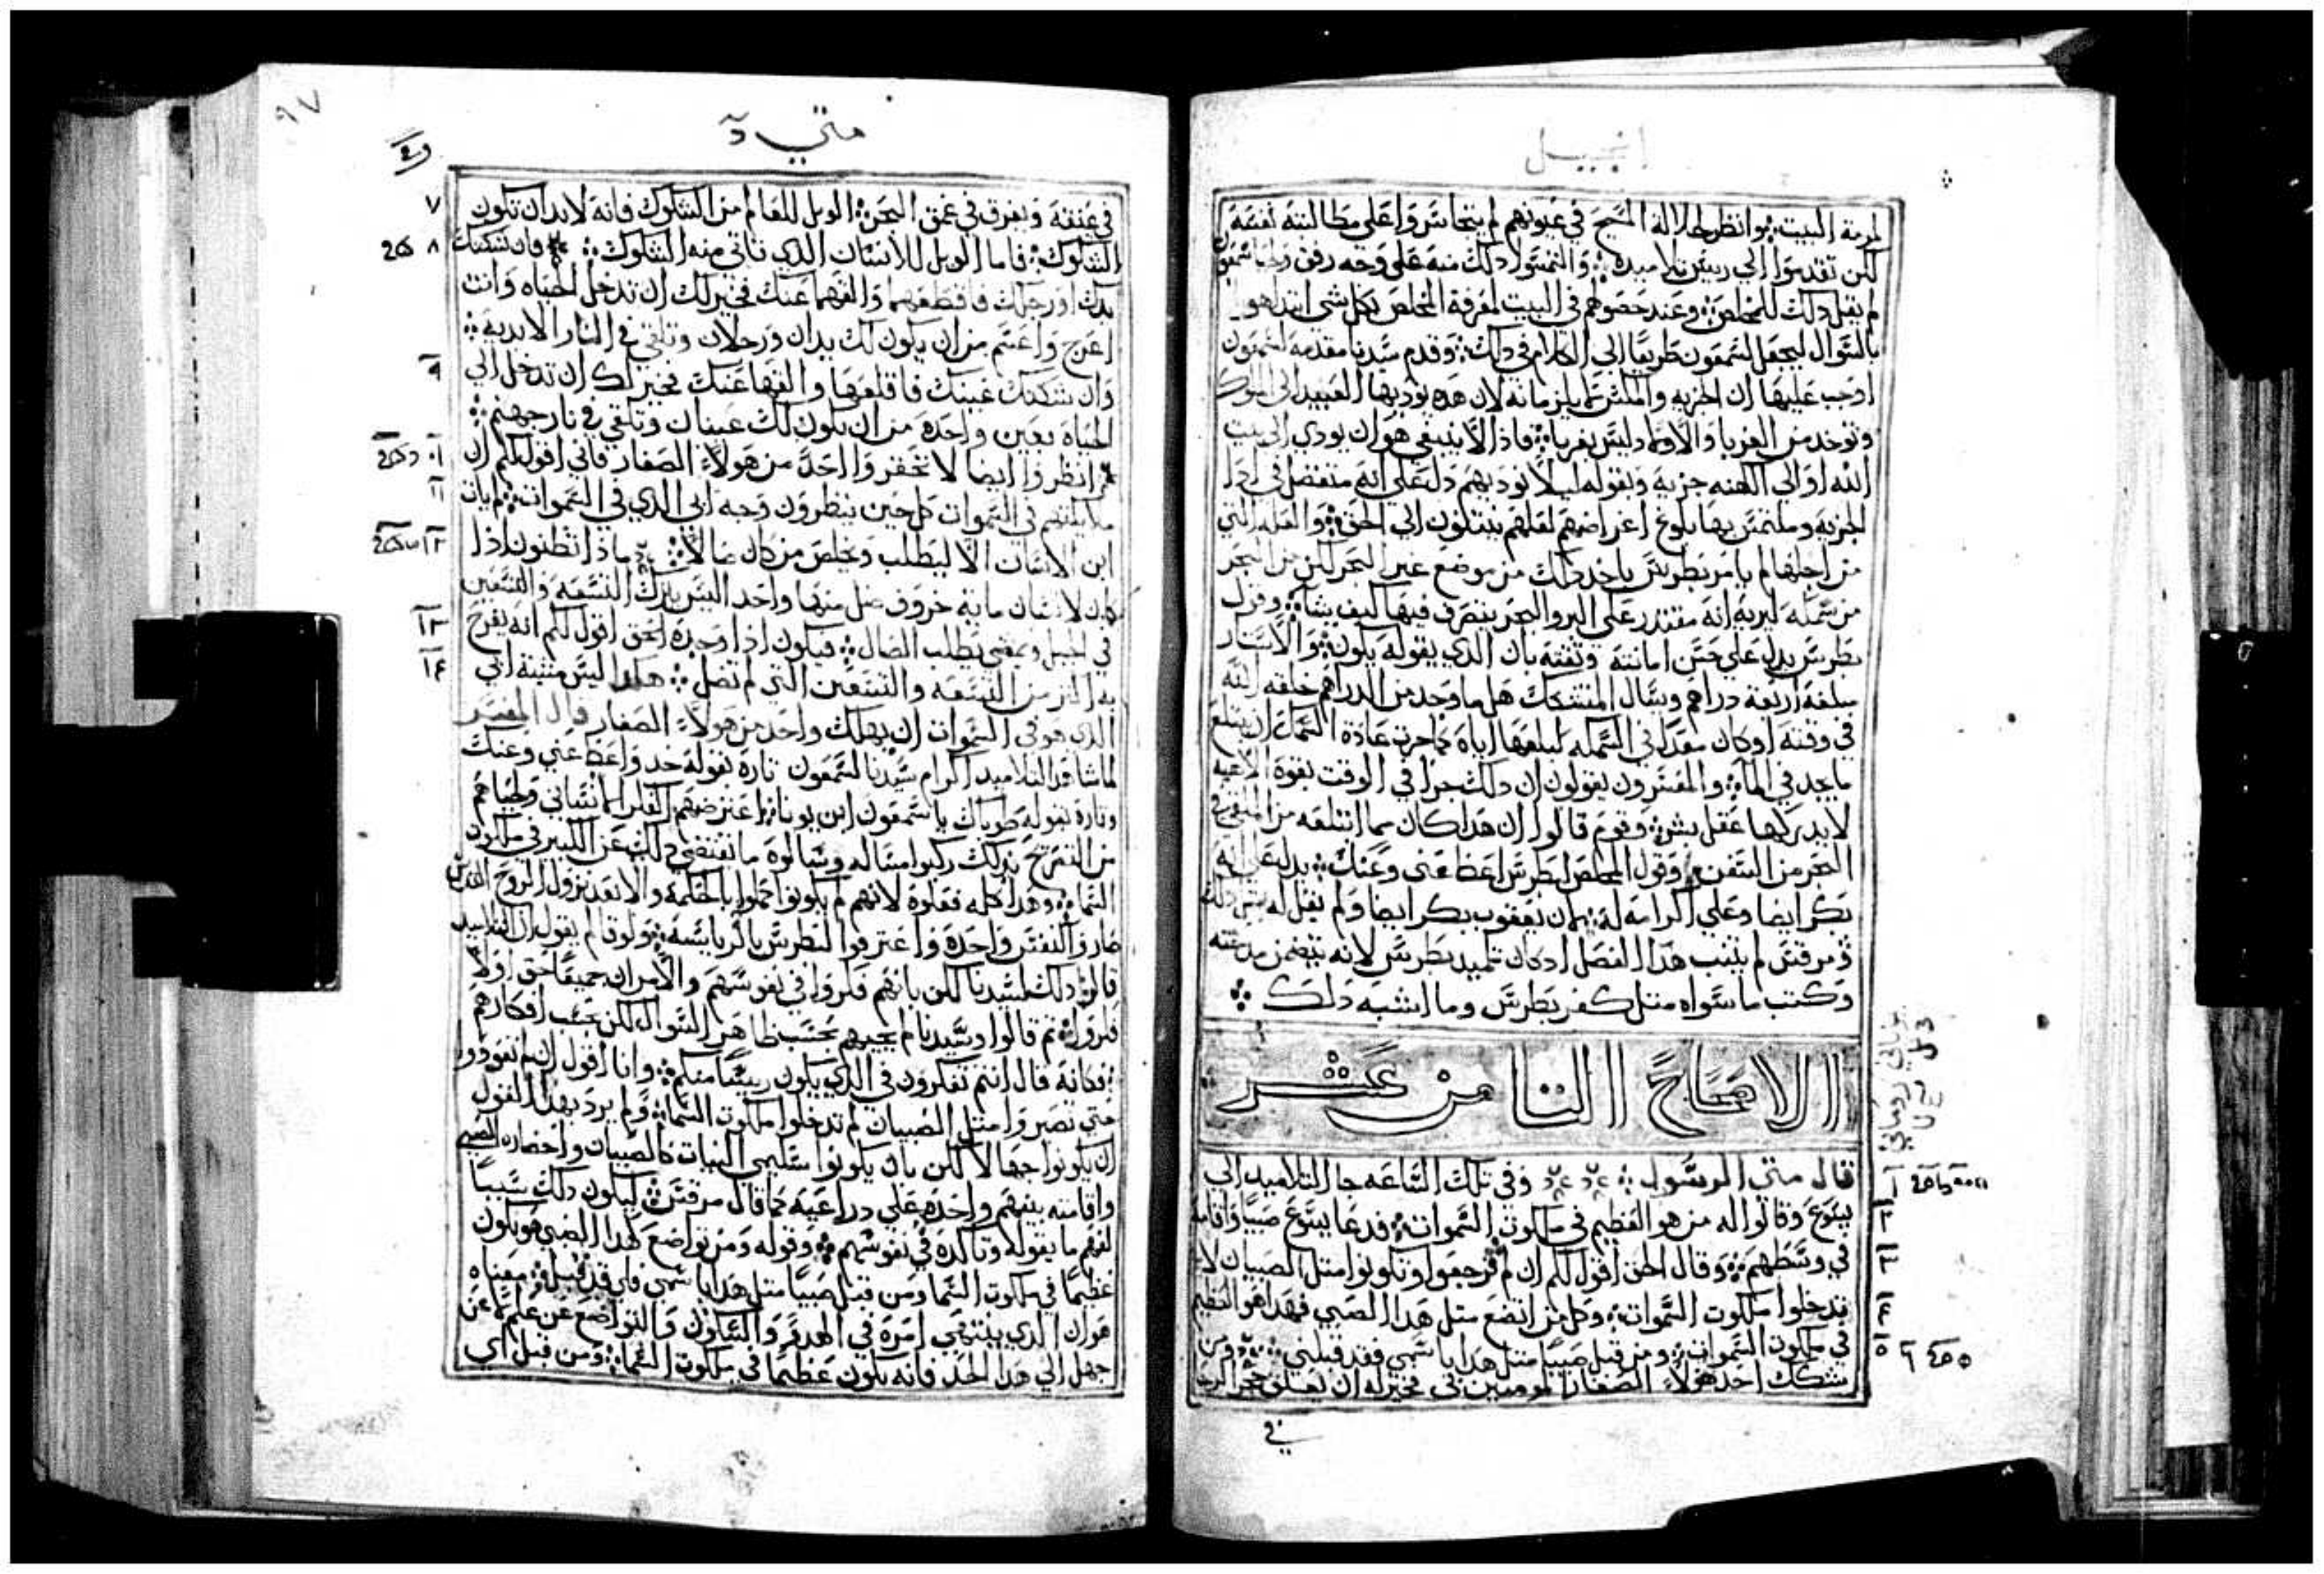 انجيل
لحرمة البيت ولنظر جلالة المسيح في عيونهم لم يتجاسروا على مطالبته نفسه
لكن تقدموا الي رييس تلاميده والتمسوا دلك منه على وجه رفق
لم يقل دلك للمخلص وعند حضورهم في البيت لمعرفة المخلص بكل شي ابتدا هو
بالسوال ليجعل لشمعون طريقا الي الكلام في دلك وقدم سيدنا مقدمه لشمعون
اوجب عليها ان الجزيه والمكس لم يلزمانه لان هده يوديها العبيد الى الملوك
وتوخد من الغربا والاولاد ليس بغربا فاذا لا ينبغي هو ان يودي الي بيت
الله او الي الكهنه جزية وبقوله ليلا نوديهم دل على انه متفضل في ادا
الجزيه وملتمس بها بلوغ اغراضهم لعلهم ينتقلون الي الحق والعله التي
من اجلها لم يامر بطرس ياخد دلك من موضع غير البحر لكن من البحر
من سمكه ليريه انه مقتدر على البر والبحر يتصرف فيها كيف يشا وقول
بطرس يدل على حسن امانته وثقته بان الدي يقوله يكون والاستار
مبلغه اربعة دراهم وسال المتشكك هل ما وجد من الدراهم خلقه الله
في وقته او كان معدا في السمكه لبلعها اياه كما جرت عادة السمك ان يبتلع
ما يجد في الما والمفسرون يقولون ان دلك جرا في الوقت بقوة الاهيه
لا يدركها عقل بشر وقوم قالوا ان هدا كان مما ابتلعه من
البحر من السفن وقول المخلص لبطرس اعط عني وعنك يدل على انه
بكر ايضا وعلي اكرامه له بما ان يعقوب بكر ايضا ولم يقل له مثل دلك
ومرقس لم يكتب هدا الفصل اد كان تلميد بطرس لانه يتضمن مدحته
وكتب ما سواه مثل كفر بطرس وما اشبه دلك
الاصحاح الثامن عشر
قال متي الرسول وفي تلك الساعه جا التلاميد الى
يسوع وقالوا له من هو العظيم في ملكوت السموات فدعا يسوع صبيا واقامه
في وسطهم وقال الحق اقول لكم ان لم ترجعوا وتكونوا مثل الصبيان لا
تدخلوا ملكوت السموات وكل من اتضع مثل هدا الصبي فهدا هو العظيم
في ملكوت السموات ومن قبل صبيا مثل هدا باسمي فقد قبلني ومن
شكك احد هولاء الصغار المومنين بي فخير له ان يعلق حجر الرحا
في
متي
في عنقه ويغرق في عمق البحر الويل للعالم من الشكوك فانه لا بد ان تكون
الشكوك فاما الويل للانسان الدي تاتي منه الشكوك فان شككتك
يدك او رجلك فاقطعهما والقهما عنك فخير لك ان تدخل الحياه وانت
اعرج واعسم من ان يكون لك يدان ورجلان وتلقي في النار الابدية
وان شككتك عينك فاقلعها والقها عنك فخير لك ان تدخل الي
الحياة بعين واحدة من ان تكون لك عينان وتلقي في نار جهنم
انظروا ايضا لا تحقروا احدا من هولاء الصغار فاني اقول لكم ان
ملايكتهم في السموات كل حين ينظرون وجه ابي الدي في السموات لم يات
ابن الانسان الا ليطلب ويخلص من كان ضالا ماذا تظنون اذا
كان لانسان ماية خروف ضل منها واحد اليس يترك التسعه والتسعين
في الجبل ويمضي يطلب الضال فيكون اذا وجده الحق اقول لكم انه يفرح
به اكثر من التسعه والتسعين التي لم تضل هكدا ليس مشية ابي
الدي هو في السموات ان يهلك واحد من هولاء الصغار قال المفسر
لما شاهد التلاميد اكرام سيدنا لشمعون تارة بقوله خد واعط عني وعنك
وتارة بقوله طوباك يا شمعون ابن يونا اعترضهم الفكر الانساني
من التصريح بذلك وسالوه ما يقتضي دلك عن الكبير في ملكوت
السما وهدا كله فعلوة لانهم لم يكونوا كملوا بالحكمه والا بعد نزول الروح القدس
صاروا كنفس واحدة واعترفوا لبطرس بالرياسة ولوقا لم يقول ان التلاميد
قالوا دلك لسيدنا لكن بانهم فكروا في نفوسهم والامران جميعا حق اولا
فكروا ثم قالوا وسيدنا لم يجبهم بحسب ظاهر السوال لكن بحسب افكارهم
فكانه قال انتم تفكرون في الدي يكون رييسا منكم وانا اقول ان لم تعودوا
حتي تصيروا مثل الصبيان لم تدخلوا ملكوت السما ولم يرد بهدا القول
ان يكونوا جهالا لكن بان يكونوا سليمي النيات كالصبيان واحضاره الصبي
واقامته بينهم واخده على دراعيه كما قال مرقس ليكون دلك سببا
لفهم ما يقوله وتاكده في نفوسهم وقوله ومن تواضع كهدا الصبي هو يكون
عظيما في ملكوت السما ومن قبل صبيا مثل هدا باسمي فاي قد قبل معناه
هو ان الدي ينتهي امره في الهدو والسكون والتواضع عن علم لا عن
جهل الي هدا الحد فانه يكون عظيما في ملكوت السما ومن قبل اي